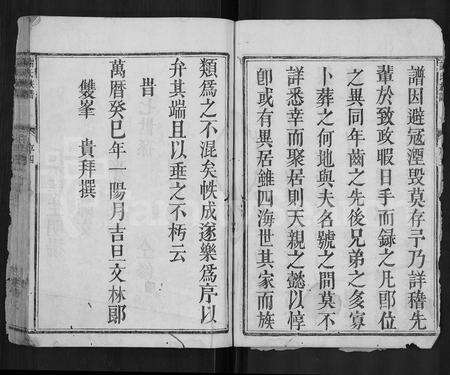 譜因避冦湮毀莫存予乃詳稽先
輩於致政暇日手而録之凡郎位
之異同年齒之先後兄弟之多寡
卜葬之何地與夫名號之間莫不
詳悉幸而聚居則天親之懿以惇
卽或有異居雖四海世其家而族
類爲之不混矣帙成遂樂爲序以
弁其端且以垂之不朽云
旹
萬曆癸巳年一陽月吉旦文林郞
雙峯 貴拜撰